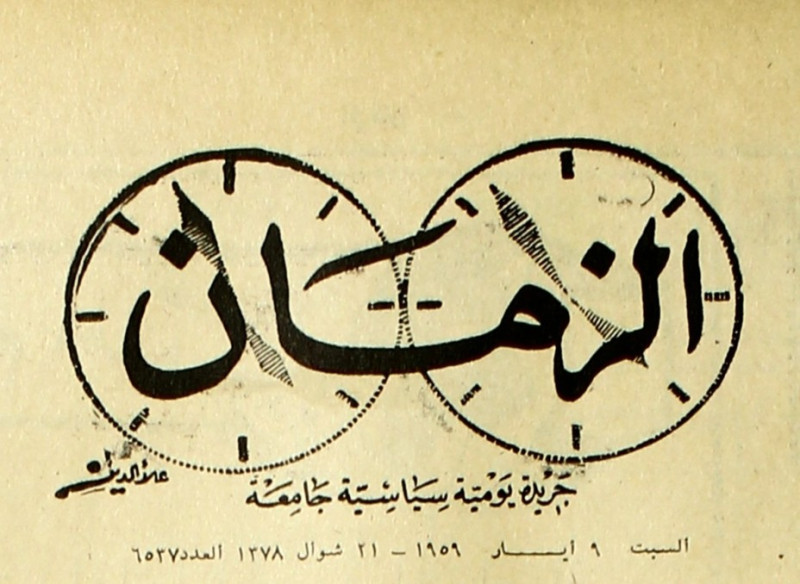 الزمان
علاءالدين
جريدة يومية سياسية جامعة
السبت ٩ أيـــار ١٩٥٩ – ٢١ شوال ١٣٧٨ العدد ٦٥٣٧